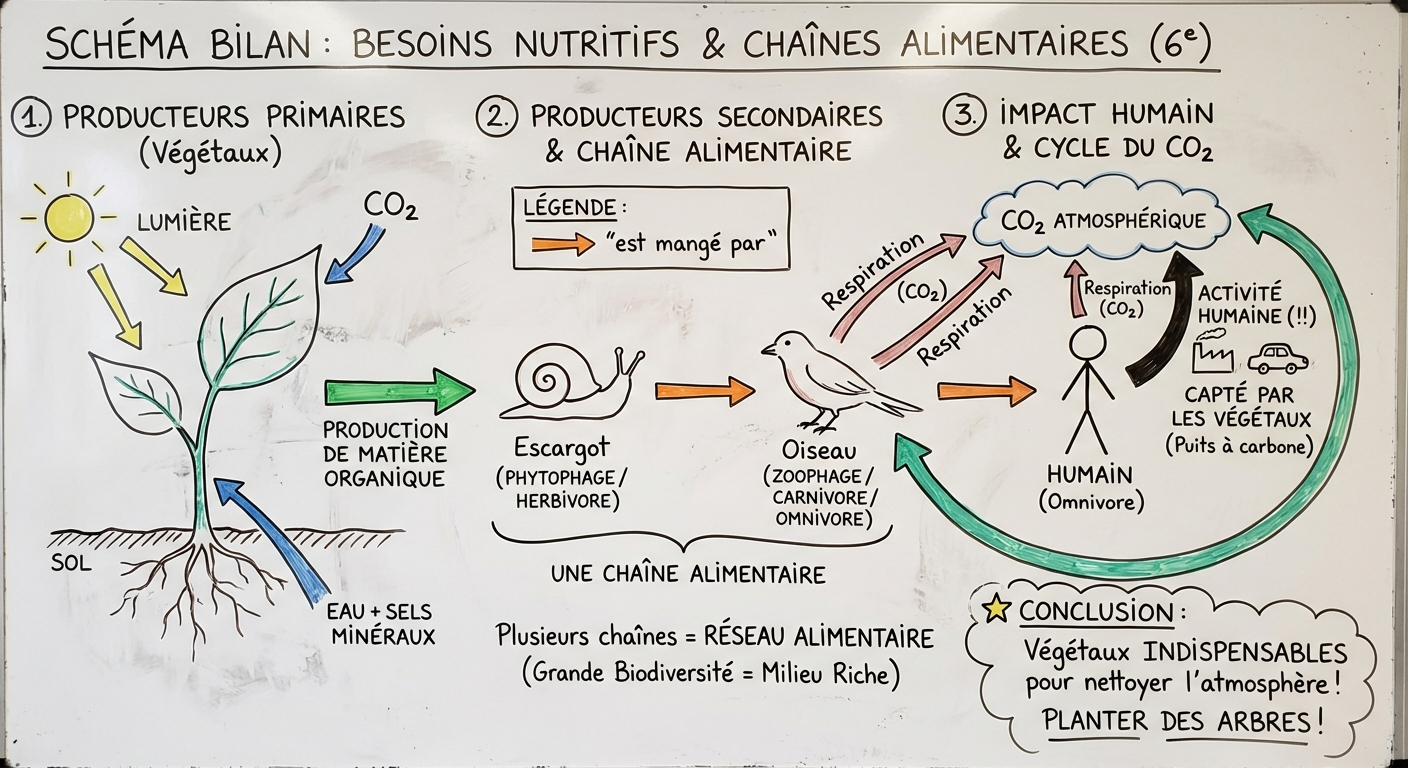 SCHÉMA BILAN : BESOINS NUTRITIFS & CHAÎNES ALIMENTAIRES (6e)
1. PRODUCTEURS PRIMAIRES
(Végétaux)
LUMIÈRE
CO₂
PRODUCTION
DE MATIÈRE
ORGANIQUE
SOL
EAU + SELS
MINÉRAUX
2. PRODUCTEURS SECONDAIRES
& CHAÎNE ALIMENTAIRE
LÉGENDE :
"est mangé par"
Escargot
(PHYTOPHAGE /
HERBIVORE)
Oiseau
(ZOOPHAGE /
CARNIVORE /
OMNIVORE)
UNE CHAÎNE ALIMENTAIRE
Plusieurs chaînes = RÉSEAU ALIMENTAIRE
(Grande Biodiversité = Milieu Riche)
3. IMPACT HUMAIN
& CYCLE DU CO₂
CO₂ ATMOSPHÉRIQUE
Respiration
(CO₂)
Respiration
Respiration
(CO₂)
ACTIVITÉ
HUMAINE (!!)
CAPTÉ PAR
LES VÉGÉTAUX
(Puits à carbone)
HUMAIN
(Omnivore)
CONCLUSION :
Végétaux INDISPENSABLES
pour nettoyer l'atmosphère !
PLANTER DES ARBRES !